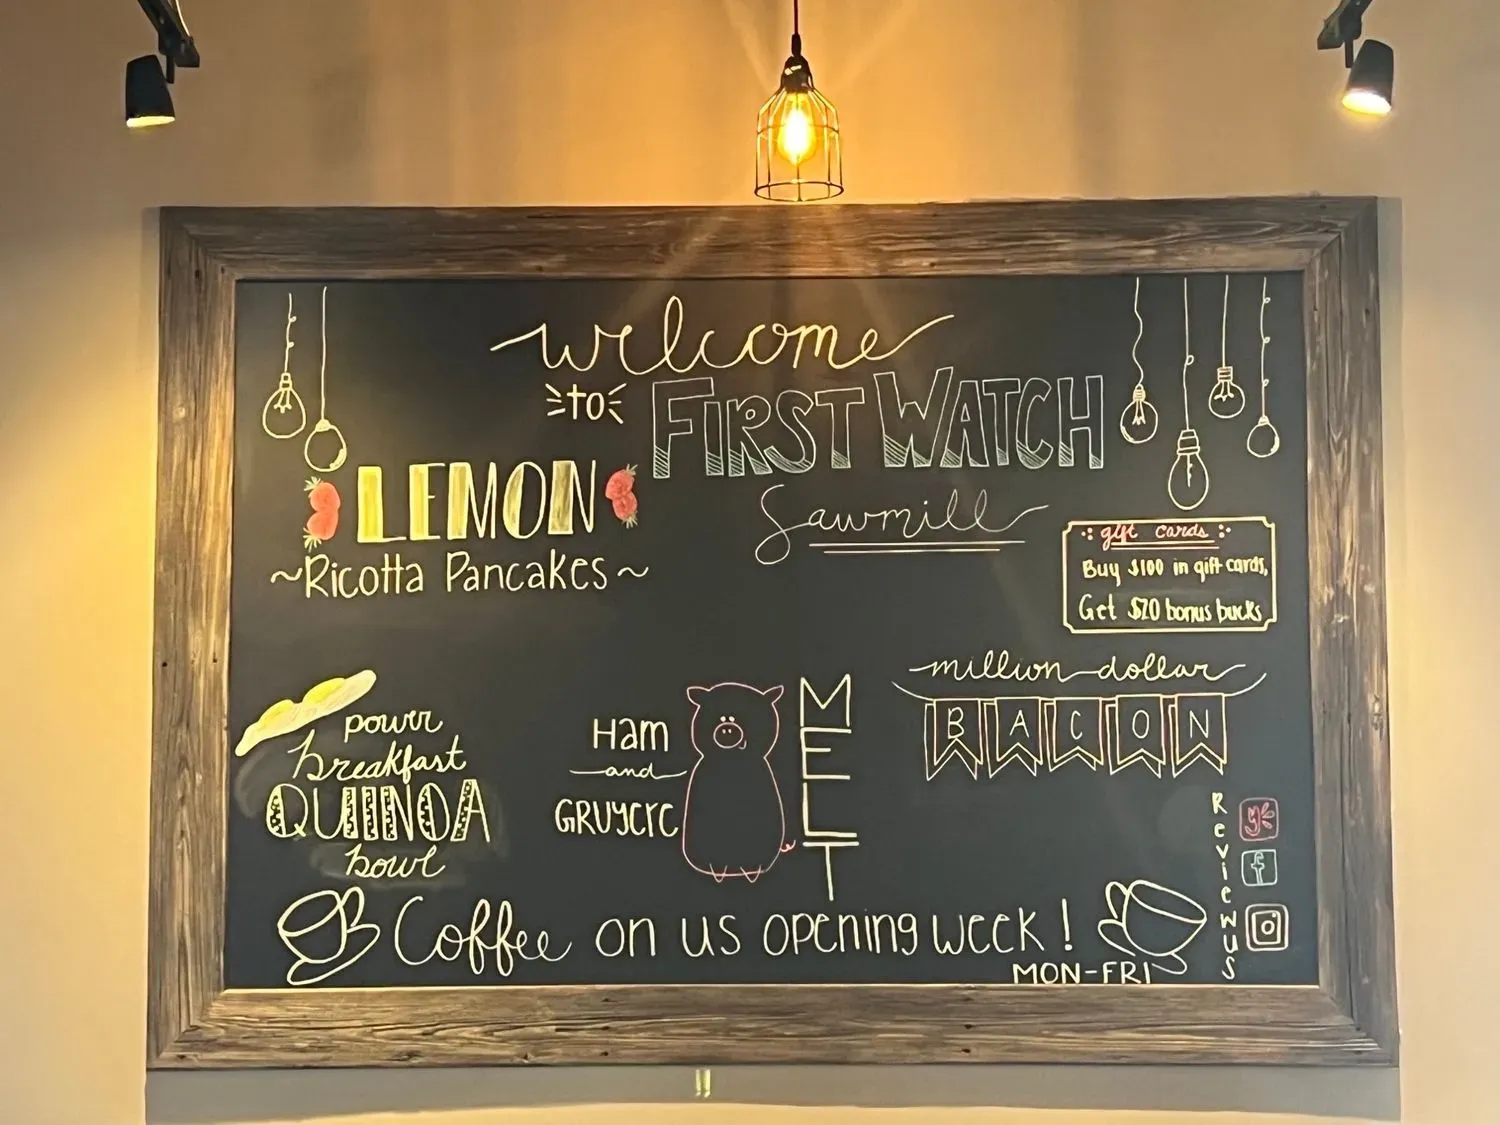 welcome
to FIRST WATCH
Sawmill
LEMON
~Ricotta Pancakes~
gift cards
Buy $100 in gift cards,
Get $20 bonus bucks
power
breakfast
QUINOA
bowl
Ham
and
GRUYERE
MELT
million dollar
BACON
Review us
Coffee on us opening week!
MON-FRI